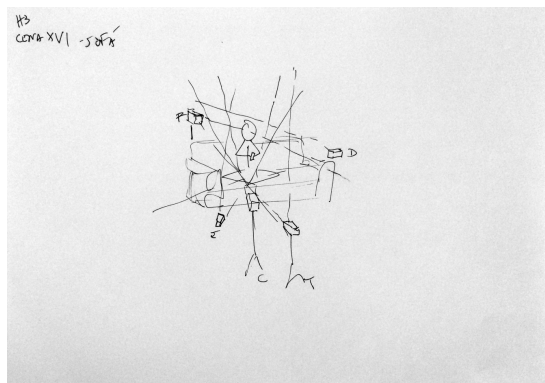 H3
CENA XVI - SOFÁ
F
D
E
C